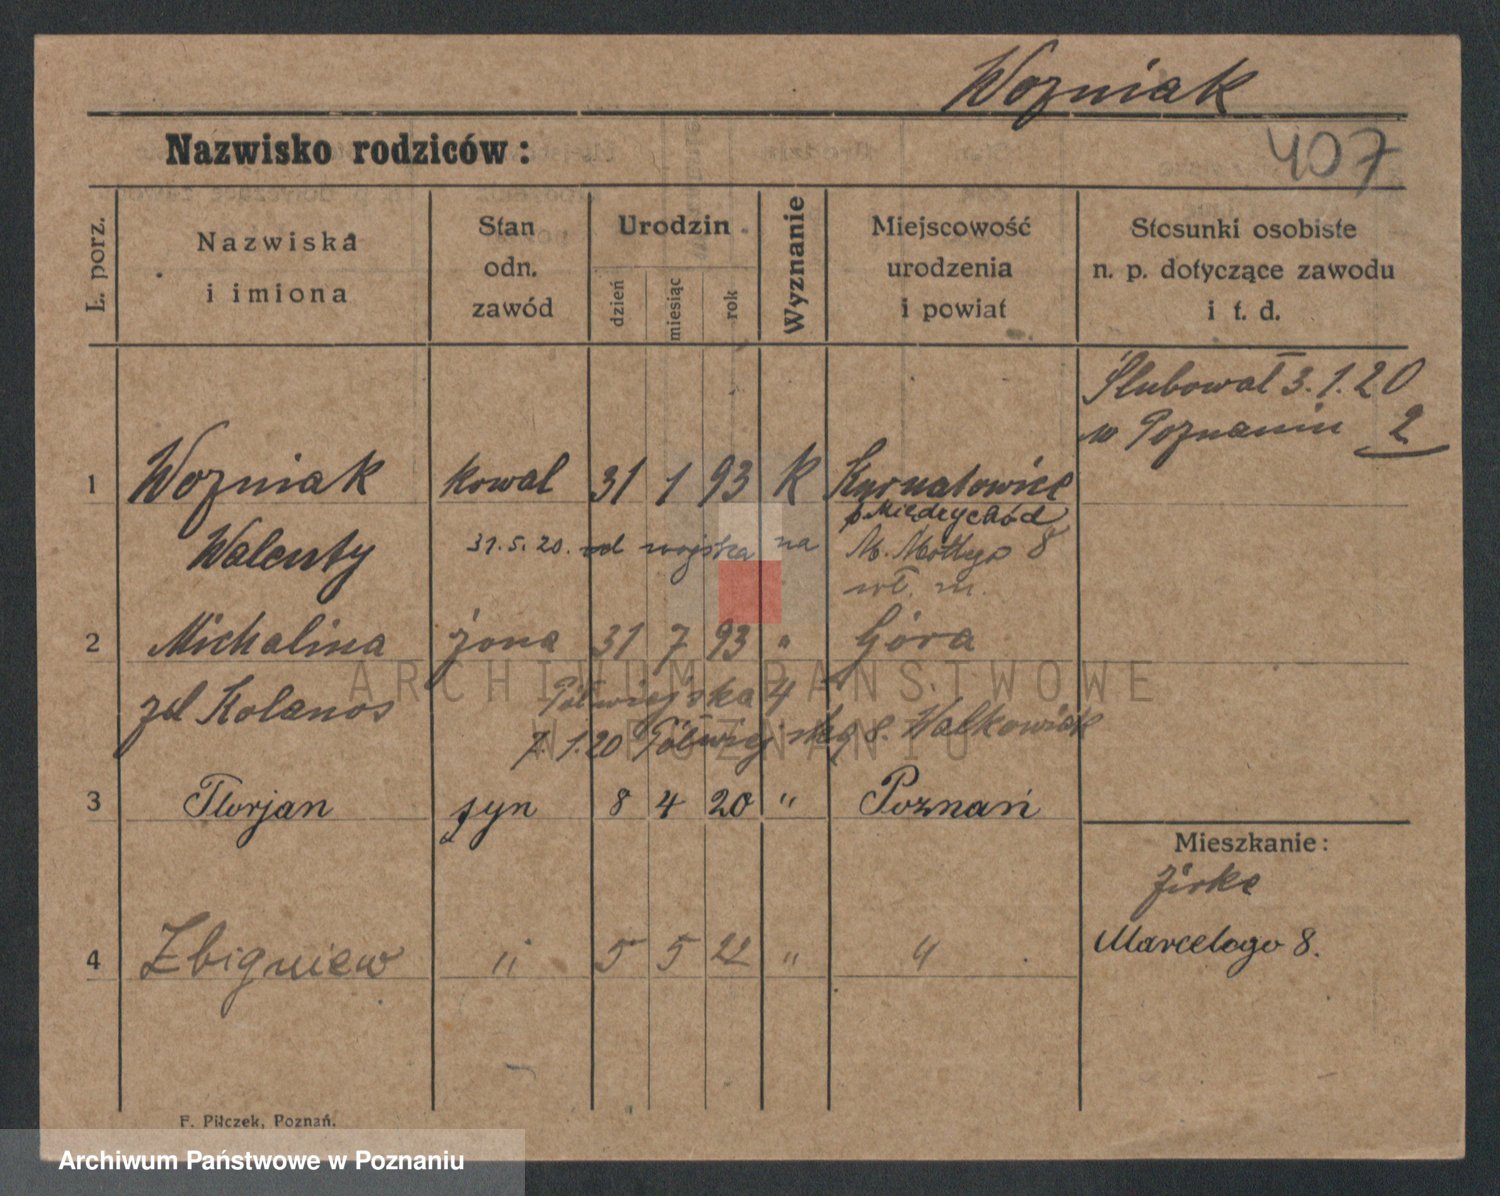 Wozniak
Nazwisko rodziców:
407
L. porz.
Nazwiska
i imiona
Stan
odn.
zawód
Urodzin
dzień
miesiąc
rok
Wyznanie
Miejscowość
urodzenia
i powiat
Stosunki osobiste
n. p. dotyczące zawodu
i t. d.
Ślubował 3.1.20
w Poznaniu 2
1 Wozniak kowal 31 1 93 K Kurnatowice
p Międzychód
Walenty 31.5.20. od wojska na M. Mottego 8
wł. m.
2 Michalina żona 31 7 93 " Góra
zd Kolanos Półwiejska 4
7.1.20 Półwiejska 8. Walkowiak
3 Florjan syn 8 4 20 " Poznań
Mieszkanie:
Marcelego 8.
4 Zbigniew " 5 5 22 " "
F. Pilczek, Poznań.
ARCHIWUM PAŃSTWOWE
W POZNANIU
Archiwum Państwowe w Poznaniu